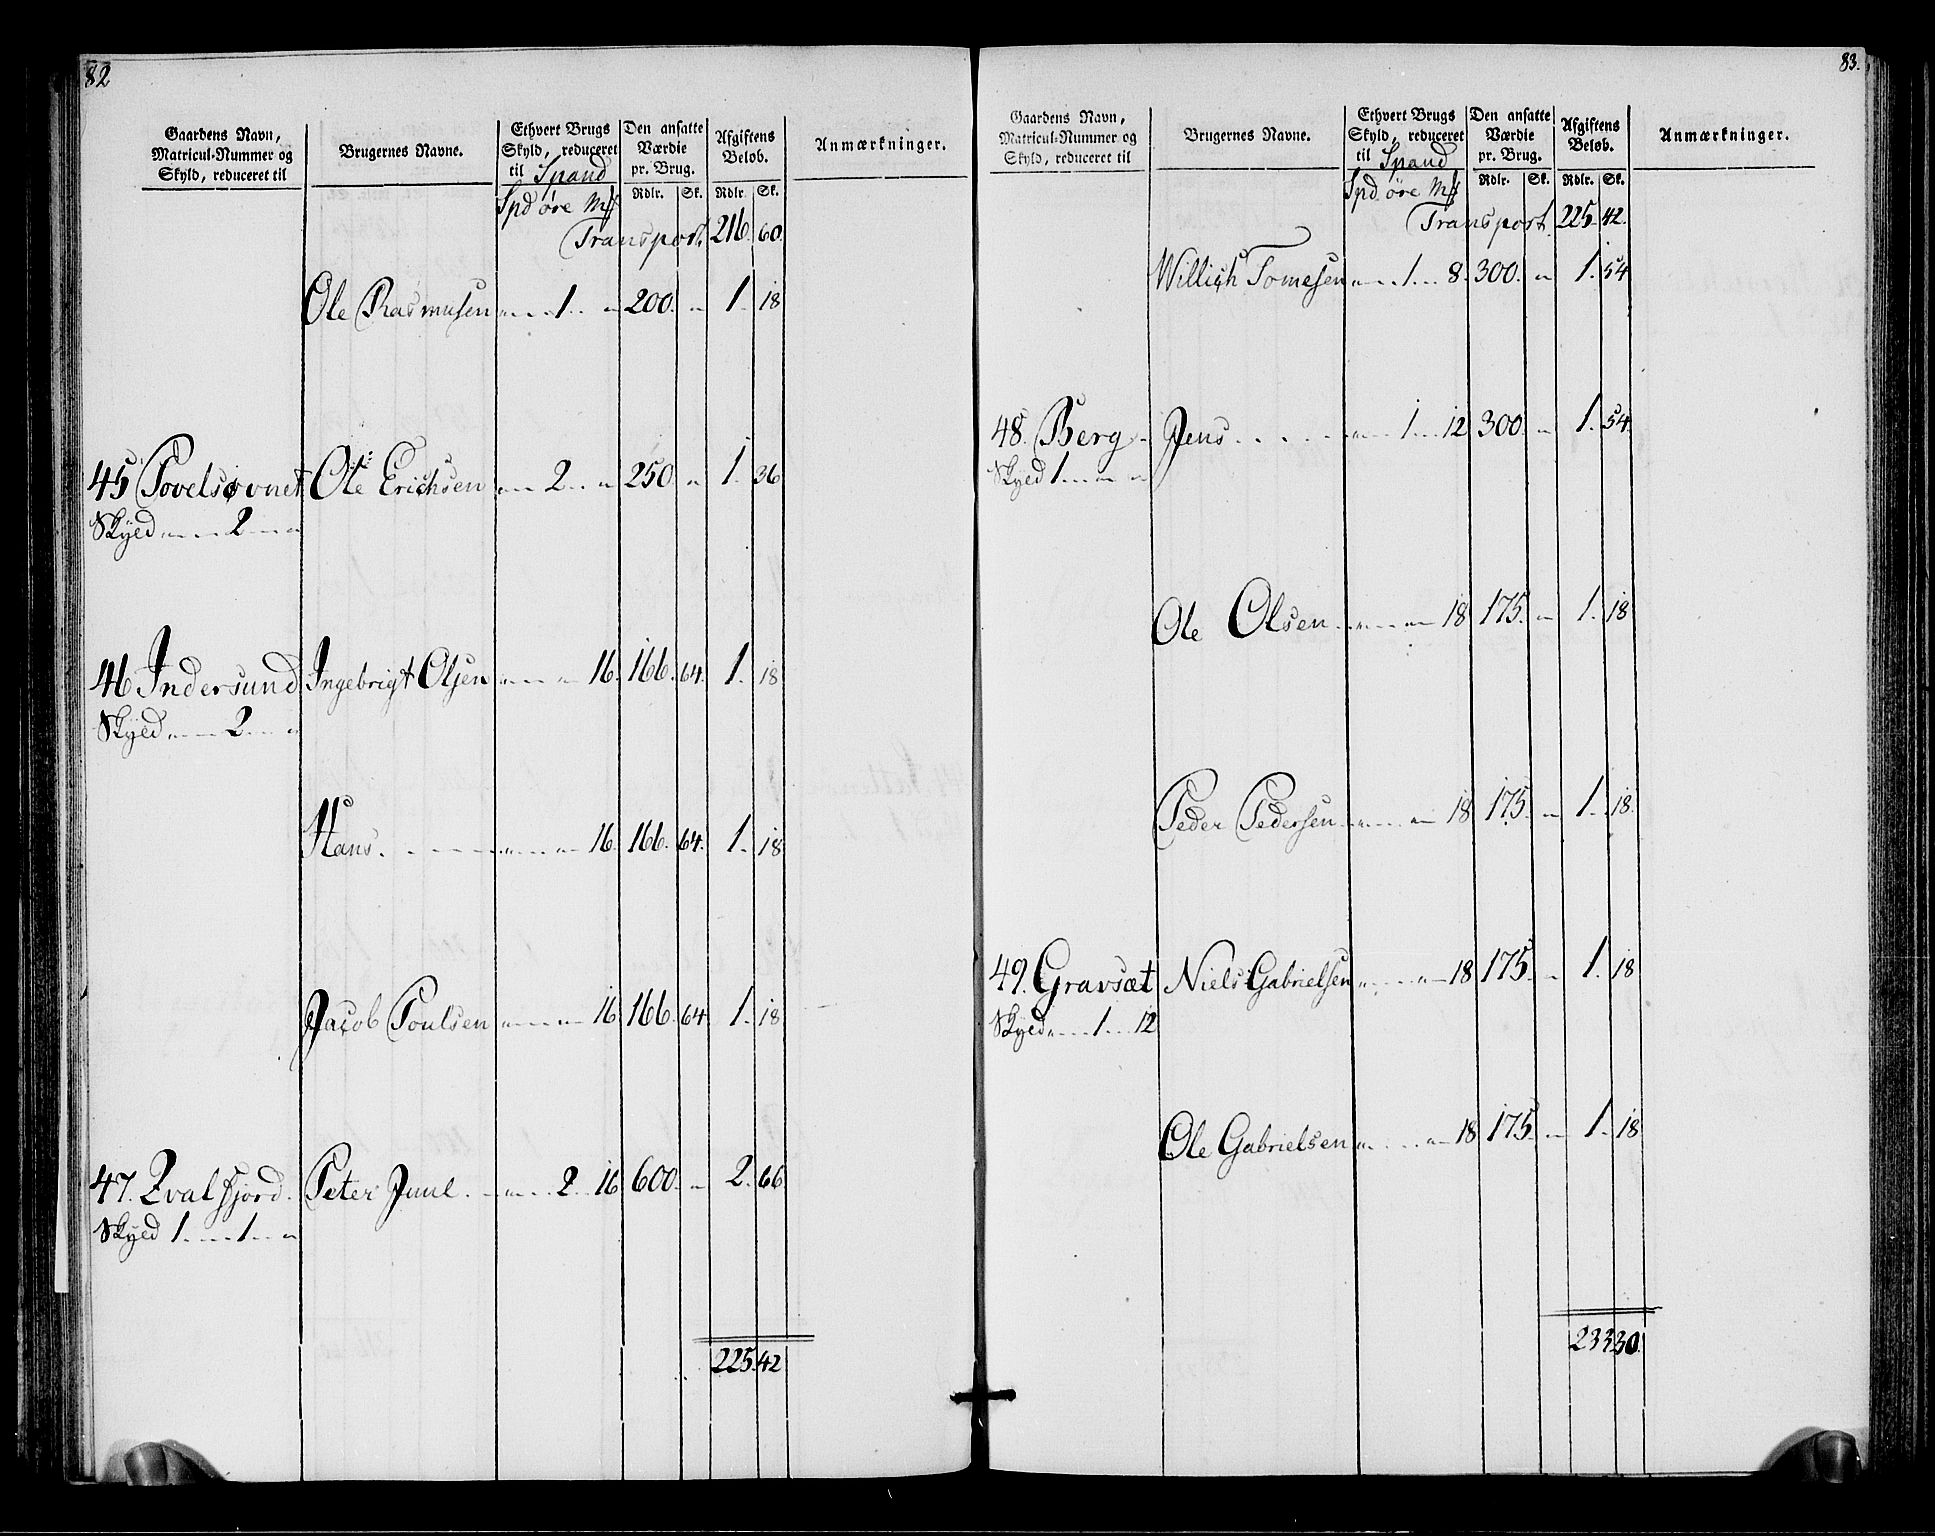 82
Gaardens Navn, Matricul-Nummer og Skyld, reduceret til
Brugernes Navne.
Ethvert Brugs Skyld, reduceret til Spand
Den ansatte Værdie pr. Brug.
Afgiftens Beløb.
Anmærkninger.
Spd øre Mk Rdlr. Sk. Rdlr. Sk.
Transport. 216. 60.
Ole Rasmusen 1. 200. 1. 18
45 Povelsøvnet Ole Erichsen 2. 250. 1. 36
Skyld 2
46 Indersund Ingebrigt Olsen 16. 166. 64. 1. 18
Skyld 2
Hans 16. 166. 64. 1. 18
Jacob Poulsen 16 166. 64. 1. 18
47. Qvalfjord Peter Juul 2 16 600. 2. 66
Skyld 1 1
225. 42
83.
Gaardens Navn, Matricul-Nummer og Skyld, reduceret til
Brugernes Navne.
Ethvert Brugs Skyld, reduceret til Spand
Den ansatte Værdie pr. Brug.
Afgiftens Beløb.
Anmærkninger.
Spd øre Mk Rdlr. Sk. Rdlr. Sk.
Transport. 225. 42.
Willich Tomesen 1. 8. 300. 1. 54
48. Berg Jens 1 12 300. 1. 54.
Skyld 1
Ole Olsen 18 175. 1. 18
Peder Pedersen 18 175. 1. 18.
49. Gravsæt Niels Gabrielsen 18 175. 1. 18
Skyld 1 12
Ole Gabrielsen 18 175. 1. 18
233 30.